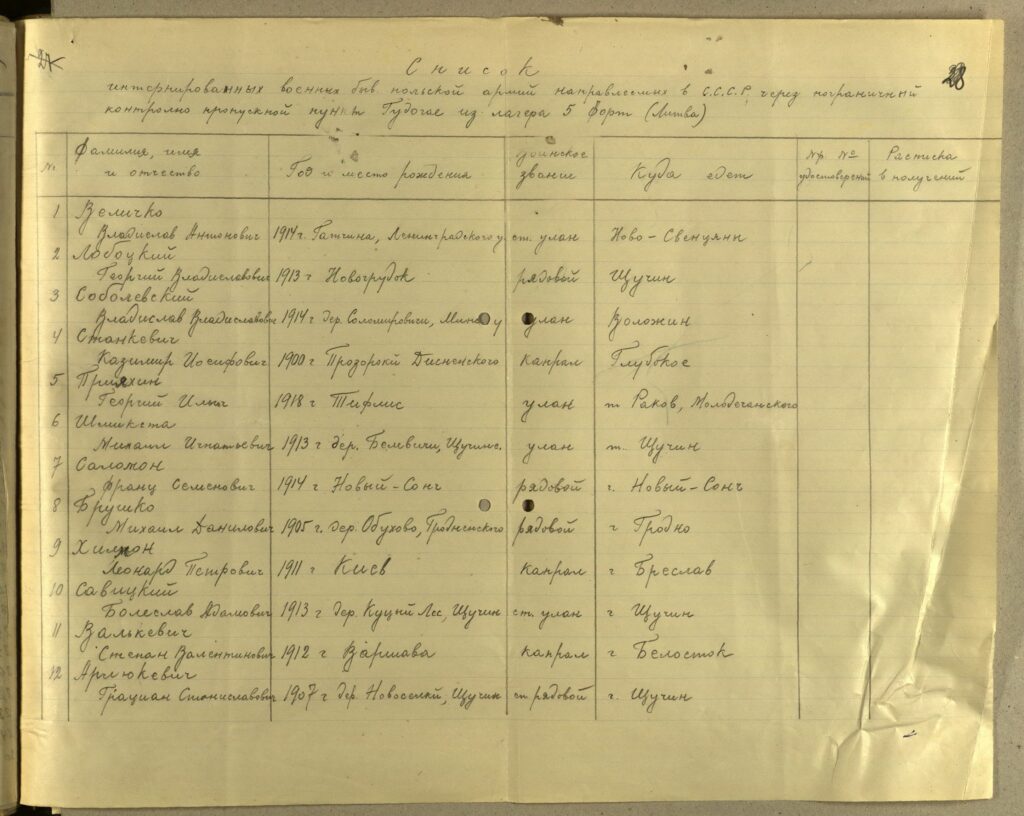 24
28
Список
интернированных военных быв. польской армий направляемых в С.С.С.Р. через пограничный
контролно пропускной пункт Гудогае из лагера 5 Форт (Литва)
№
Фамилия, имя
и отчество
Год и место рождения
воинское
звание
Куда едет
№
удостоверений
Расписка
в получений
1 Величко
Владислав Антонович 1914 г. Гатчина, Ленинградского у. ст. улан Ново-Свенцяны
2 Лобоцкий
Георгий Владиславович 1913 г Новогрудок рядовой Щучин
3 Соболевский
Владислав Владиславович 1914 г дер. Соломировичи, у улан Воложин
4 Станкевич
Казимир Иосифович 1900 г Прозорокй Дисненского капрал Глубокое
5 Пряхин
Георгий Илич 1918 г Тифлис улан м Раков, Молодечанского
6 Шмикста
Михаил Игнатьевич 1913 г дер. Щучинс. улан м. Щучин
7 Саломон
Франц Семенович 1914 г Новый-Сонч рядовой г. Новый-Сонч
8 Брушко
Михаил Данилович 1905 г. дер. Обухово, Гродненского рядовой г Гродно
9 Химон
Леонард Петрович 1911 г Киев капрал г Бреслав
10 Савицкий
Болеслав Адамович 1913 г дер. Куцый Лес, Щучин ст. улан г Щучин
11 Валькевич
Степан Валентинович 1912 г Варшава капрал г Белосток
12 Армюкевич
Грациан Станиславович 1907 г дер. Новоселкй, Щучин ст. рядовой г. Щучин